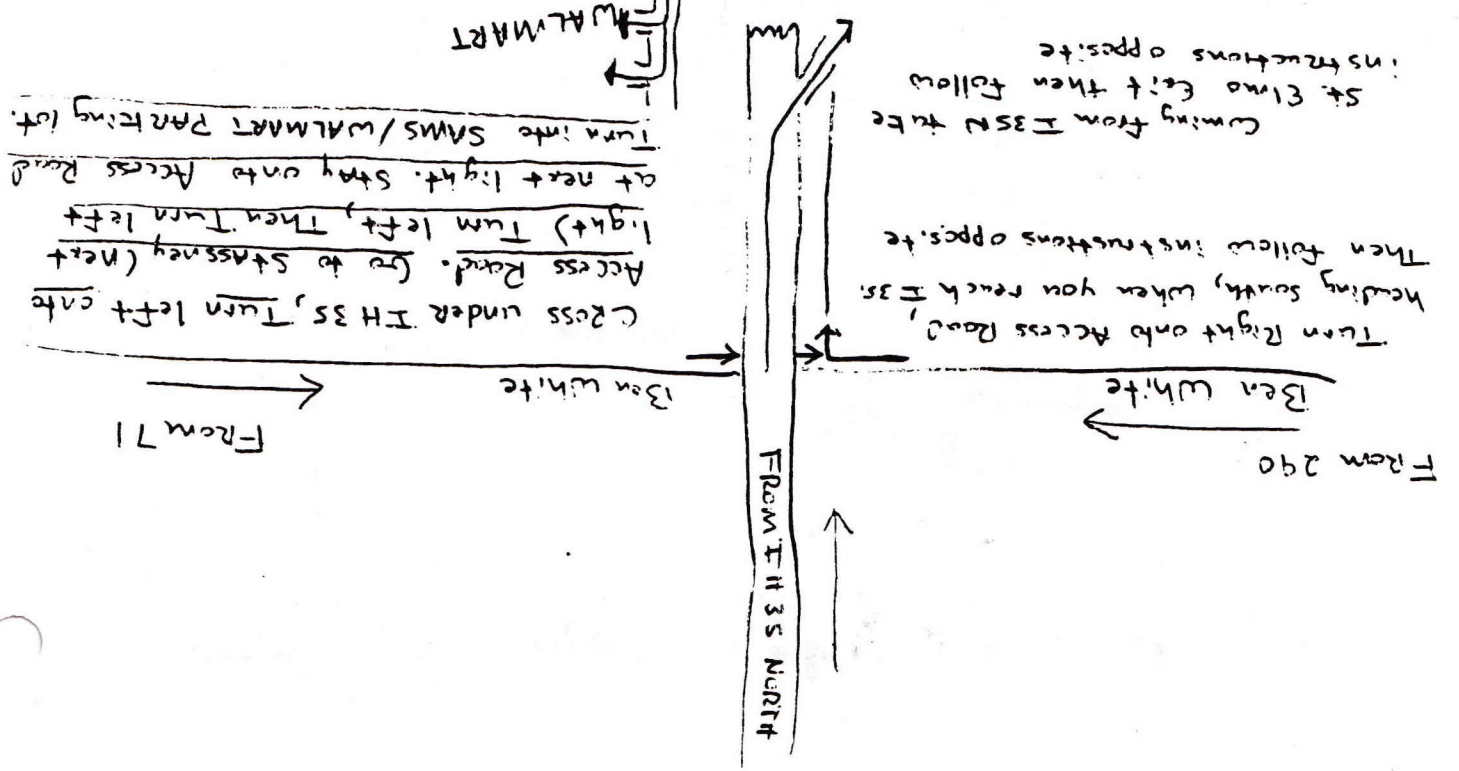 FROM I H 35 NORTH
From 290
Ben White
Turn Right onto Access Road,
heading south, when you reach I 35.
Then follow instructions opposite.
Coming from I35N take
St. Elmo Exit then follow
instructions opposite
From 71
Ben White
Cross under IH 35, Turn left onto
Access Road. Go to Stassney (next
light) Turn left, Then Turn left
at next light. Stay onto Access Road
Turn into SAMS/WALMART PARKing lot.
WALMART